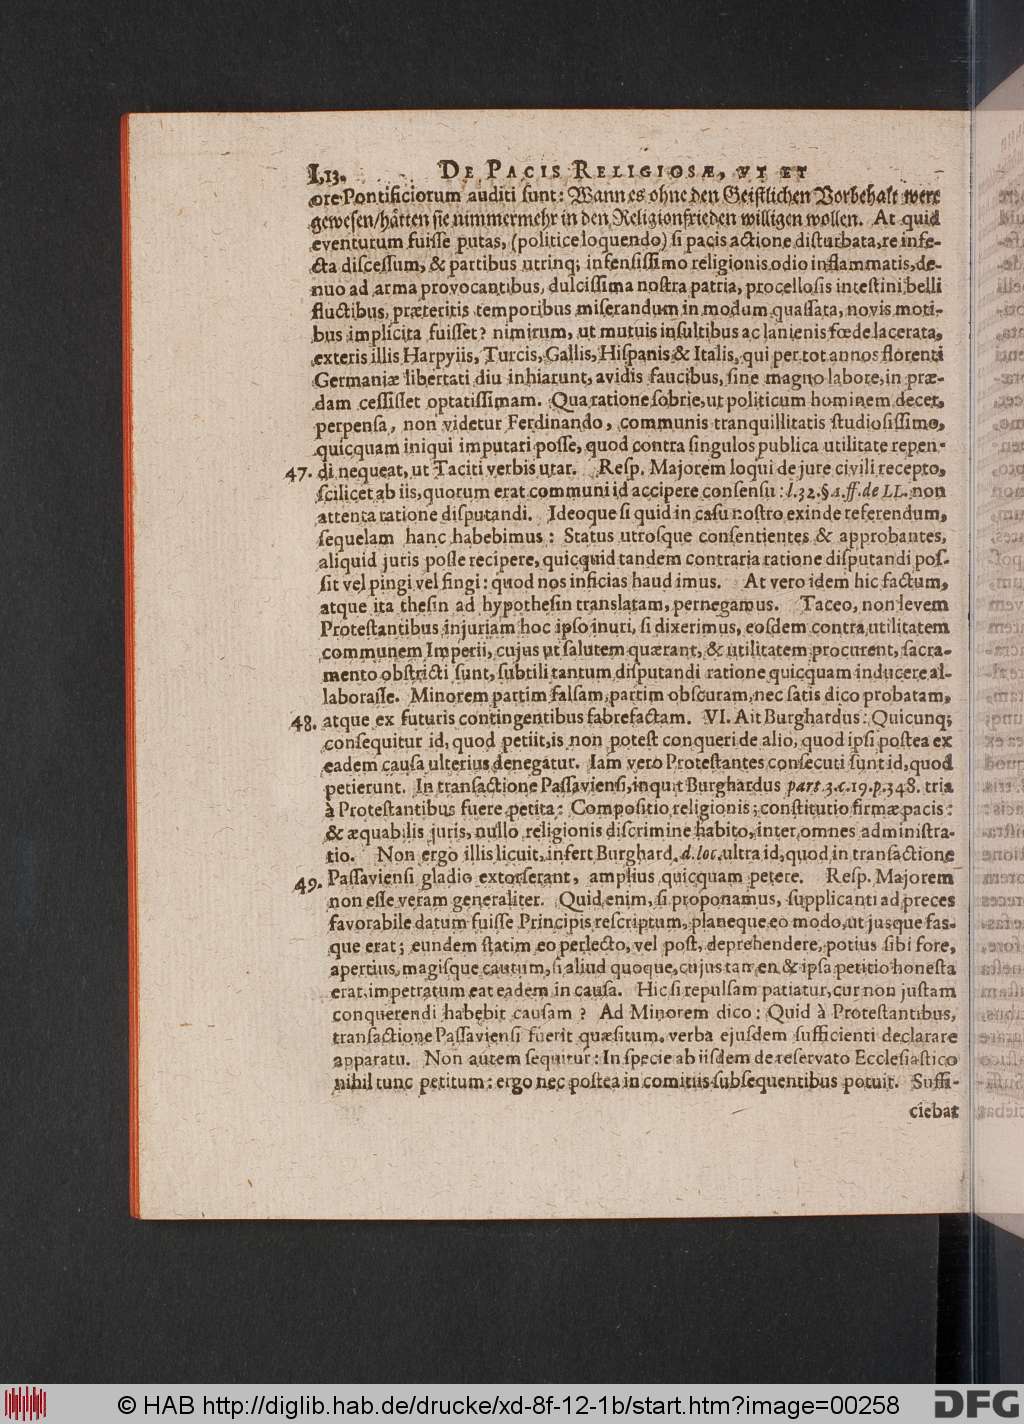 I,13. DE PACIS RELIGIOSÆ, VT ET
ore Pontificiorum auditi sunt: Wann es ohne den Geistlichen Vorbehalt were
gewesen/hätten sie nimmermehr in den Religionfrieden willigen wollen. At quid
eventurum fuisse putas, (politice loquendo) si pacis actione disturbata, re infe-
cta discessum, & partibus utrinq; infensissimo religionis odio inflammatis, de-
nuo ad arma provocantibus, dulcissima nostra patria, procellosis intestini belli
fluctibus, præteritis temporibus miserandum in modum quassata, novis moti-
bus implicita fuisset? nimirum, ut mutuis insultibus ac lanienis fœde lacerata,
exteris illis Harpyiis, Turcis, Gallis, Hispanis & Italis, qui per tot annos florenti
Germaniæ libertati diu inhiarunt, avidis faucibus, sine magno labore, in præ-
dam cessisset optatissimam. Qua ratione sobrie, ut politicum hominem decet,
perpensa, non videtur Ferdinando, communis tranquillitatis studiosissimo,
quicquam iniqui imputari posse, quod contra singulos publica utilitate repen-
47. di nequeat, ut Taciti verbis utar. Resp. Majorem loqui de jure civili recepto,
scilicet ab iis, quorum erat communi id accipere consensu: l. 32. §. 1. ff. de LL. non
attenta ratione disputandi. Ideoque si quid in casu nostro exinde referendum,
sequelam hanc habebimus: Status utrosque consentientes & approbantes,
aliquid juris posse recipere, quicquid tandem contraria ratione disputandi pos-
sit vel pingi vel fingi: quod nos inficias haud imus. At vero idem hic factum,
atque ita thesin ad hypothesin translatam, pernegamus. Taceo, non levem
Protestantibus injuriam hoc ipso inuri, si dixerimus, eosdem contra utilitatem
communem Imperii, cujus ut salutem quærant, & utilitatem procurent, sacra-
mento obstricti sunt, subtili tantum disputandi ratione quicquam inducere al-
laborasse. Minorem partim falsam, partim obscuram, nec satis dico probatam,
48. atque ex futuris contingentibus fabrefactam. VI. Ait Burghardus: Quicunq;
consequitur id, quod petiit, is non potest conqueri de alio, quod ipsi postea ex
eadem causa ulterius denegatur. Iam vero Protestantes consecuti sunt id, quod
petierunt. In transactione Passaviensi, inquit Burghardus part. 3. c. 19. p. 348. tria
à Protestantibus fuere petita: Compositio religionis; constitutio firmæ pacis:
& æquabilis juris, nullo religionis discrimine habito, inter omnes administra-
tio. Non ergo illis licuit, infert Burghard. d. loc. ultra id, quod in transactione
49. Passaviensi gladio extorserant, amplius quicquam petere. Resp. Majorem
non esse veram generaliter. Quid enim, si proponamus, supplicanti ad preces
favorabile datum fuisse Principis rescriptum, planeque eo modo, ut jusque fas-
que erat; eundem statim eo perlecto, vel post, deprehendere, potius sibi fore,
apertius, magisque cautum, si aliud quoque, cujus tamen & ipsa petitio honesta
erat, impetratum eat eadem in causa. Hic si repulsam patiatur, cur non justam
conquerendi habebit causam? Ad Minorem dico: Quid à Protestantibus,
transactione Passaviensi fuerit quæsitum, verba ejusdem sufficienti declarare
apparatu. Non autem sequitur: In specie ab iisdem de reservato Ecclesiastico
nihil tunc petitum: ergo nec postea in comitiis subsequentibus potuit. Suffi-
ciebat
© HAB http://diglib.hab.de/drucke/xd-8f-12-1b/start.htm?image=00258
DFG